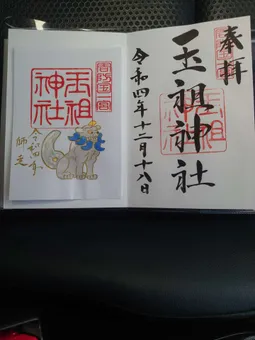 奉拝
玉祖神社
玉祖神社
令和四年十二月十八日
周防國一宮
玉祖神社
令和四年
師走